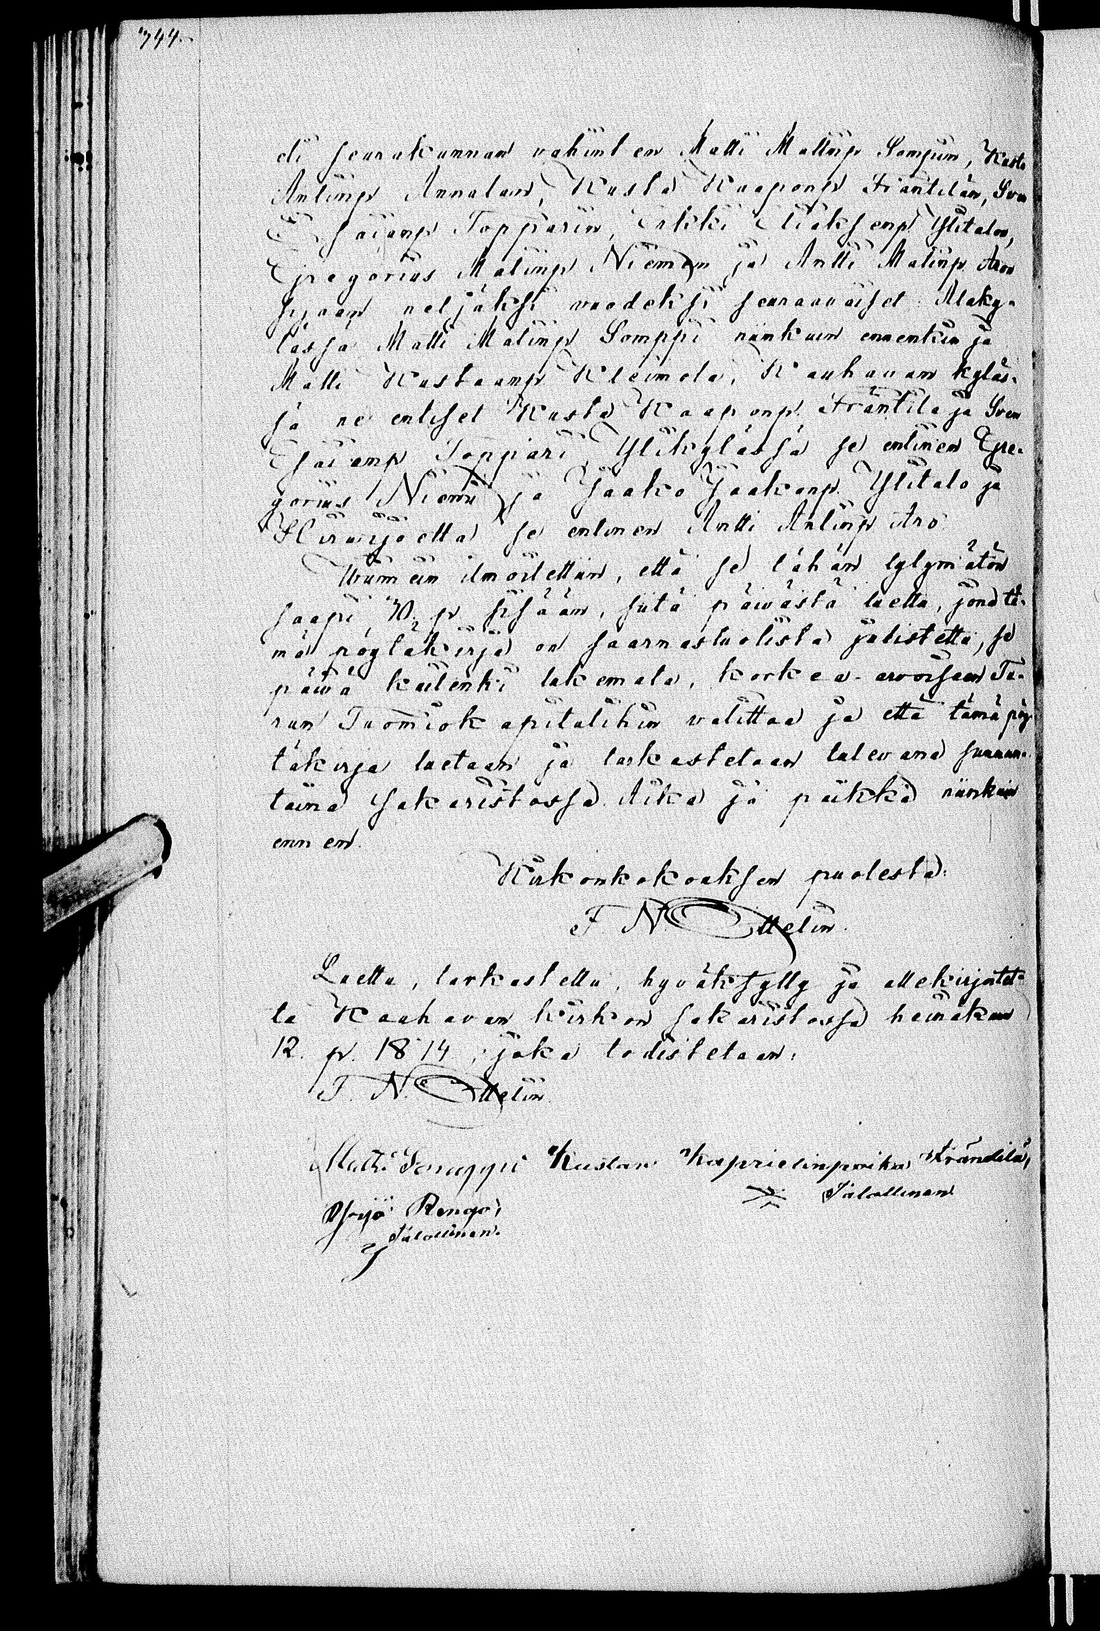 744.
eli seurakunnan vahinten Matti Matinp Sompin, Kusta
Antinp Annalan, Kusta Kaaponp Fräntilän, Sven
Esaianp Topparin, Erkki Eliaksenp Ylitalon,
Gregorius Matinp Niemen ja Antti Matinp Aron
sijaan neljäksi vuodeksi seuraavaiset: Alaky-
lässä Matti Matinp Somppi niinkuin ennenkin ja
Matti Kustaanp Kleimola, Kauhavan kyläs-
sä ne entiset Kusta Kaaponp. Fräntilä ja Sven
Esaianp Toppari Ylikylässä se entinen Gre-
gorius Niemi ja Jaako Jaakonp Ylitalo ja
Hirvijoella se entinen Antti Antinp Aro.
Wiimein ilmoitettiin, että se tähän tytymätön
saapi 30. p sisään, siitä päivästä luettu, jona tä-
mä pöytäkirja on saarnastuolista julistettu, se
päivä kuitenki lukemata, korkea-arvoisaan Tu-
run Tuomiokapitulihin valittaa ja että tämä pöy-
täkirja luetaan ja tarkastetaan tulevana sunnun-
taina sakaristossa. Aika ja paikka niinkuin
ennen.
Kirkonkokouksen puolesta:
F. N. Ottelin.
Luettu, tarkastettu, hyväksytty ja allekirjotet-
tu Kauhavan kirkon sakaristossa heinäkuun
12. p. 1874, joka todistetaan:
F. N. Ottelin
Matti Somppi Kustaa Kaprielinpoika Fräntilä,
Yrjö Rengo, Talollinen
Talollinen.